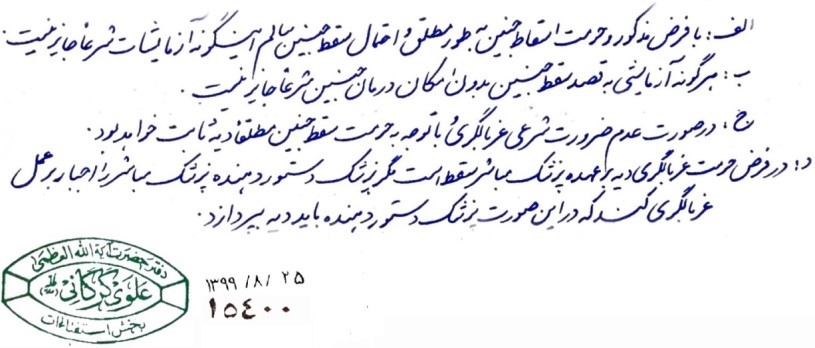 الف: با فرض مذکور و حرمت اسقاط جنین به طور مطلق و احتمال سقط جنین سالم اینگونه آزمایشات شرعاً جایز نیست.
ب: هرگونه آزمایشی به قصد سقط جنین بدون امکان درمان جنین شرعاً جایز نیست.
ج: در صورت عدم ضرورت شرعی غربالگری با توجه به حرمت سقط جنین مطلقاً دیه ثابت خواهد بود.
د: در فرض حرمت غربالگری دیه بر عهده پزشک مباشر سقط است مگر پزشک دستور دهنده پزشک مباشر را اجبار بر عمل
غربالگری کند که در این صورت پزشک دستور دهنده باید دیه بپردازد.
دفتر حضرت آیة الله العظمی
علوی گرگانی
بخش استفتائات
۱۳۹۹/۸/۲۵
۱۵۴۰۰